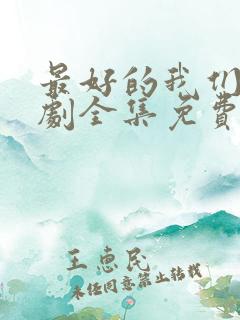 最好的我们
劇全集免費
王惠民
未任同意禁止转载